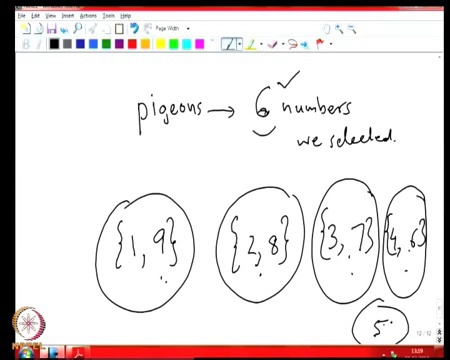 File Edit View Insert Actions Tools Help
Page Width
pigeons → 6 numbers
we selected.
{1, 9} {2, 8} {3, 7} {4, 6}
5
12/12
NPTEL
13:59